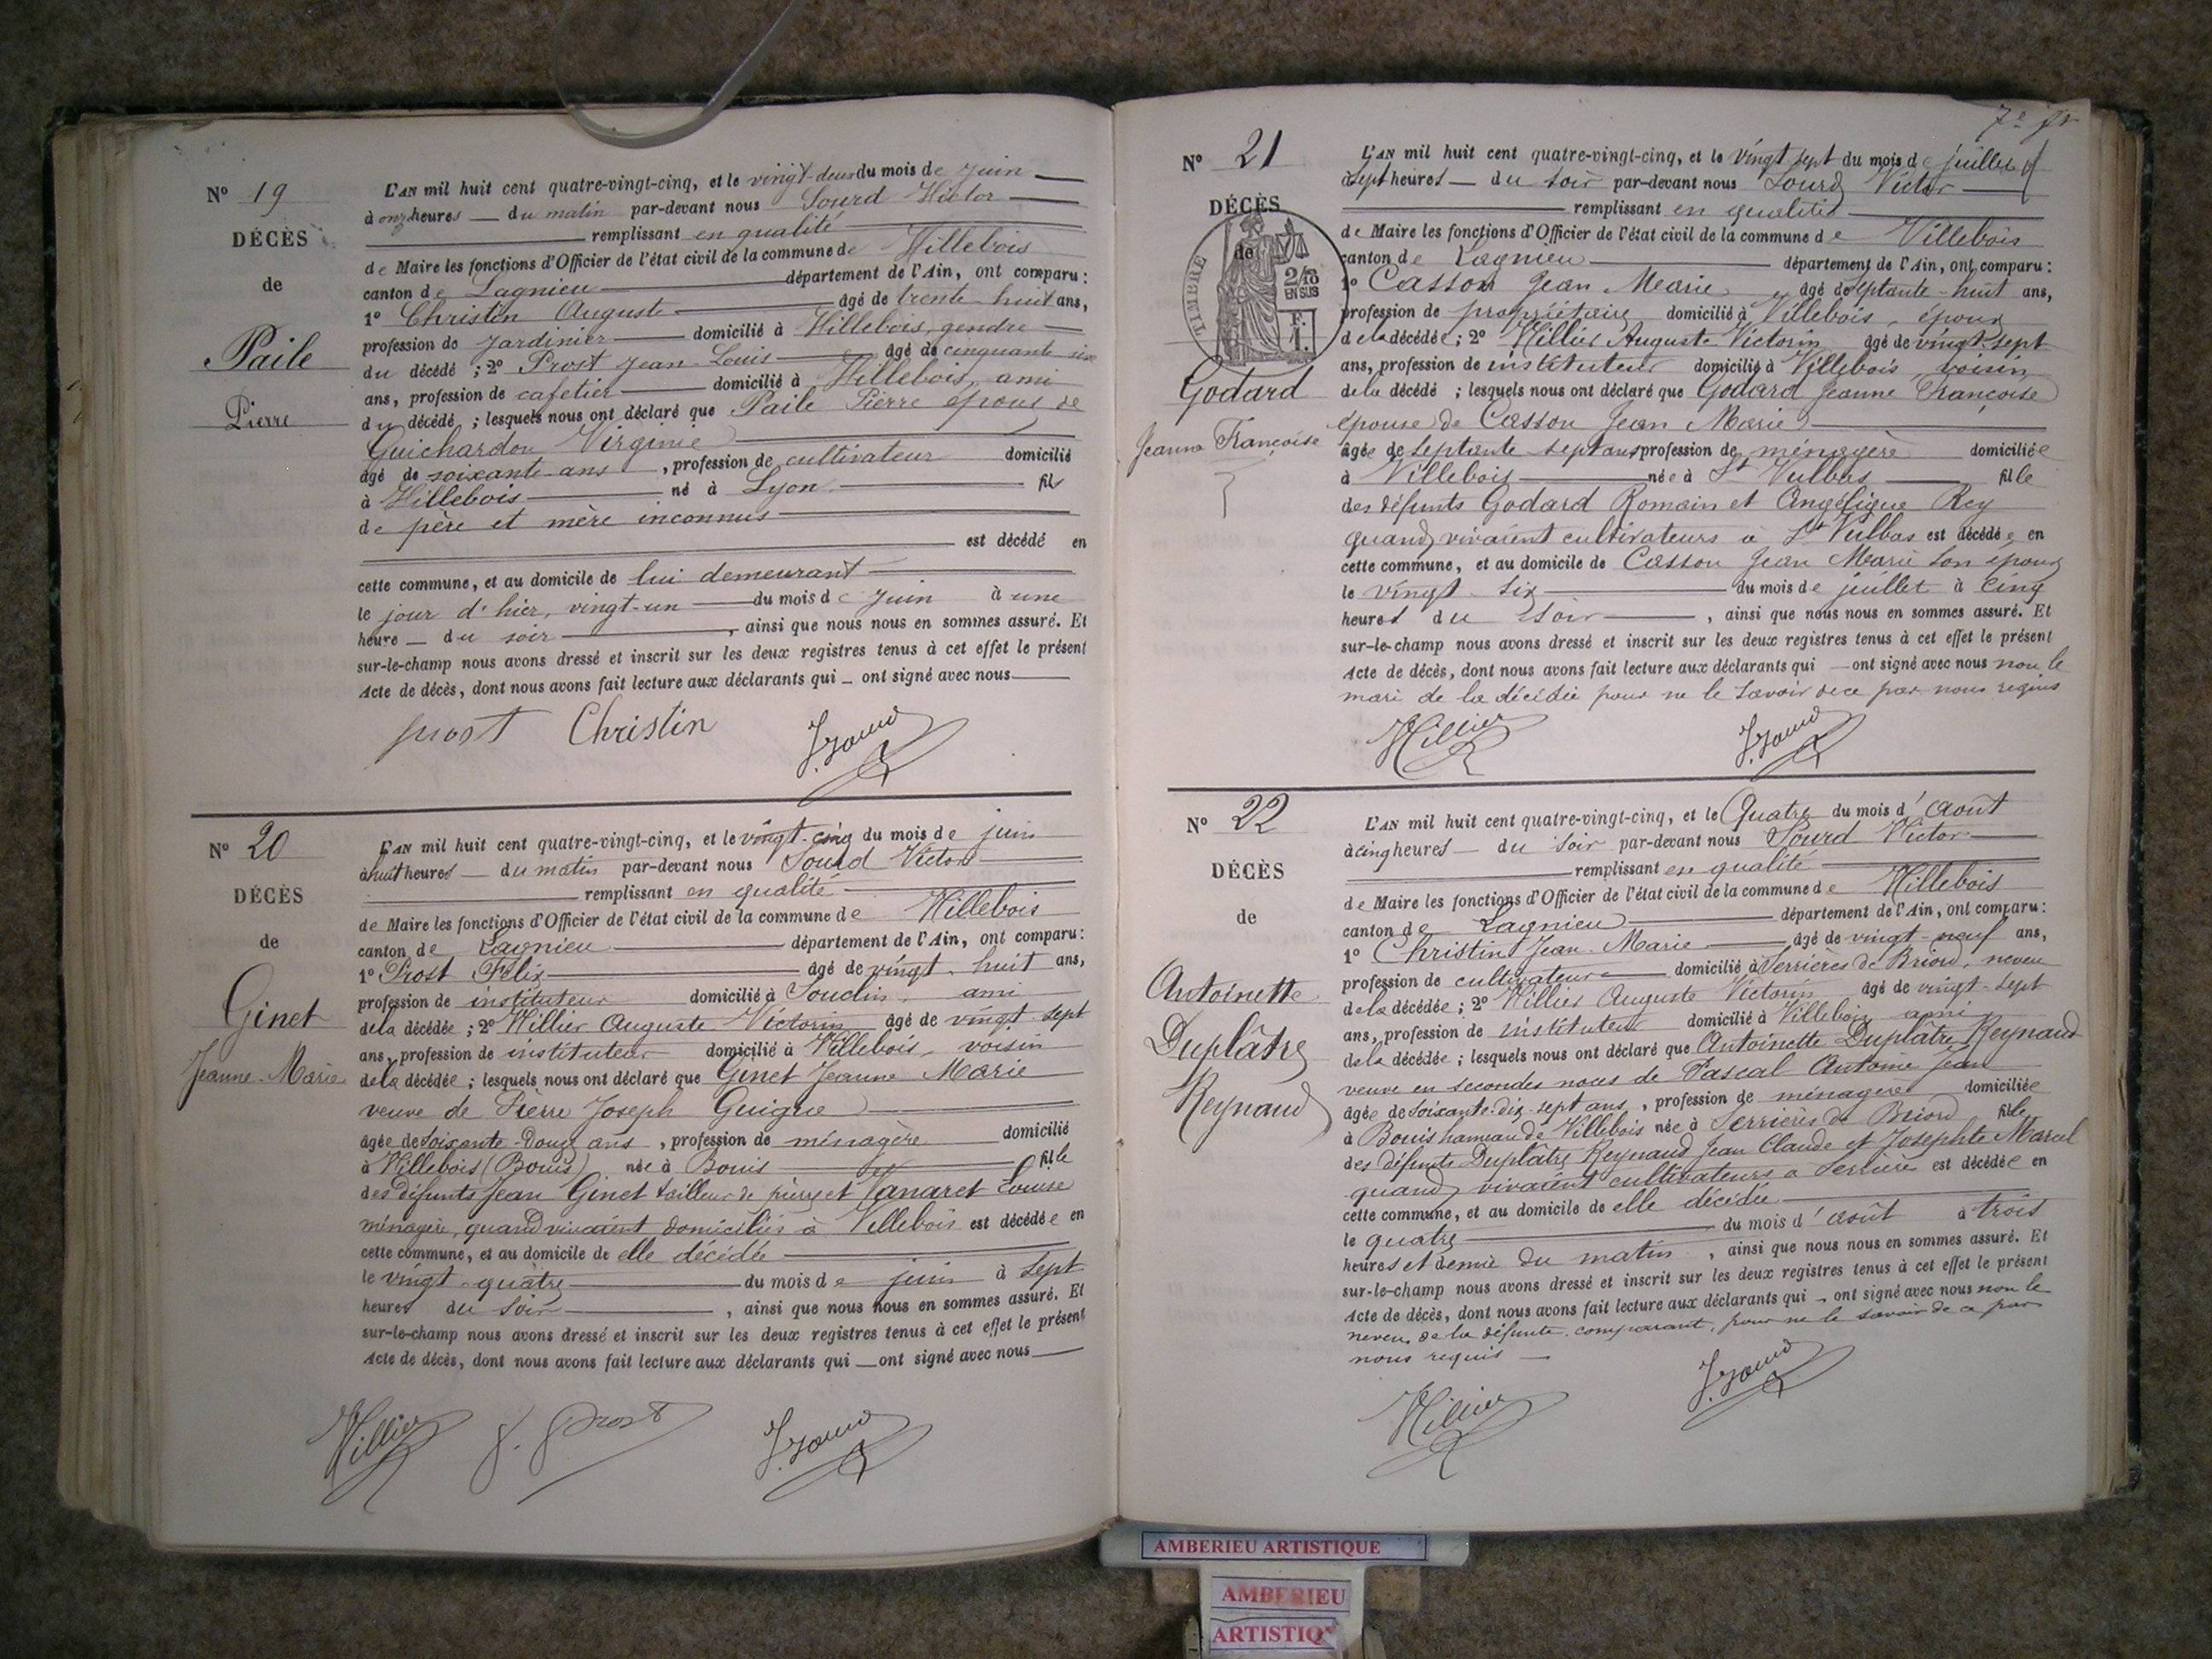 Nº 19
DÉCÈS
de
Paile
Pierre
L'AN mil huit cent quatre-vingt-cinq, et le vingt-deux du mois de juin
à onze heures du matin par-devant nous Sourd Victor
remplissant en qualité
de Maire les fonctions d'Officier de l'état civil de la commune de Villebois
canton de Lagnieu département de l'Ain, ont comparu :
1º Christin Auguste âgé de trente-huit ans,
profession de jardinier domicilié à Villebois, gendre
du décédé ; 2º Prost Jean-Louis âgé de cinquante-six
ans, profession de cafetier domicilié à Villebois, ami
du décédé ; lesquels nous ont déclaré que Paile Pierre époux de
Guichardon Virginie
âgé de soixante ans, profession de cultivateur domicilié
à Villebois né à Lyon fils
de père et mère inconnus
est décédé en
cette commune, et au domicile de lui demeurant
le jour d'hier, vingt-un du mois de juin à une
heure du soir, ainsi que nous nous en sommes assuré. Et
sur-le-champ nous avons dressé et inscrit sur les deux registres tenus à cet effet le présent
Acte de décès, dont nous avons fait lecture aux déclarants qui ont signé avec nous
prost Christin
Nº 20
DÉCÈS
de
Ginet
Jeanne-Marie
L'AN mil huit cent quatre-vingt-cinq, et le vingt-cinq du mois de juin
à huit heures du matin par-devant nous Sourd Victor
remplissant en qualité
de Maire les fonctions d'Officier de l'état civil de la commune de Villebois
canton de Lagnieu département de l'Ain, ont comparu :
1º Prost Félix âgé de vingt-huit ans,
profession de instituteur domicilié à Souclin, ami
de la décédée ; 2º Villier Auguste Victorin âgé de vingt-sept
ans, profession de instituteur domicilié à Villebois, voisin
de la décédée ; lesquels nous ont déclaré que Ginet Jeanne Marie
veuve de Pierre Joseph Guigue
âgée de soixante-douze ans, profession de ménagère domicilié
à Villebois (Bouis) née à Bouis fille
des défunts Jean Ginet tailleur de pierre et Vanaret Louise
ménagère, quand vivaient domiciliés à Villebois est décédée en
cette commune, et au domicile de elle décédée
le vingt-quatre du mois de juin à sept
heures du soir, ainsi que nous nous en sommes assuré. Et
sur-le-champ nous avons dressé et inscrit sur les deux registres tenus à cet effet le présent
Acte de décès, dont nous avons fait lecture aux déclarants qui ont signé avec nous
Villier F. Prost
Nº 21
DÉCÈS
de
TIMBRE
2/10
EN SUS
F.
1.
Godard
Jeanne Françoise
L'AN mil huit cent quatre-vingt-cinq, et le vingt sept du mois de juillet
à sept heures du soir par-devant nous Sourd Victor
remplissant en qualité
de Maire les fonctions d'Officier de l'état civil de la commune de Villebois
canton de Lagnieu département de l'Ain, ont comparu :
1º Casson Jean Marie âgé de septante-huit ans,
profession de propriétaire domicilié à Villebois, époux
de la décédée ; 2º Villier Auguste Victorin âgé de vingt-sept
ans, profession de instituteur domicilié à Villebois, voisin
de la décédé ; lesquels nous ont déclaré que Godard Jeanne Françoise
épouse de Casson Jean Marie
âgée de septante sept ans profession de ménagère domiciliée
à Villebois née à St Vulbas fille
des défunts Godard Romain et Angélique Rey
quand vivaient cultivateurs à St Vulbas est décédée en
cette commune, et au domicile de Casson Jean Marie son époux
le vingt-six du mois de juillet à cinq
heures du soir, ainsi que nous nous en sommes assuré. Et
sur-le-champ nous avons dressé et inscrit sur les deux registres tenus à cet effet le présent
Acte de décès, dont nous avons fait lecture aux déclarants qui ont signé avec nous non le
mari de la décédée pour ne le savoir de ce par nous requis
Villier
Nº 22
DÉCÈS
de
Antoinette
Duplâtre
Reynaud
L'AN mil huit cent quatre-vingt-cinq, et le Quatre du mois d'août
à cinq heures du soir par-devant nous Sourd Victor
remplissant en qualité
de Maire les fonctions d'Officier de l'état civil de la commune de Villebois
canton de Lagnieu département de l'Ain, ont comparu :
1º Christin Jean-Marie âgé de vingt-neuf ans,
profession de cultivateur domicilié à Serrières de Briord, neveu
de la décédée ; 2º Villier Auguste Victorin âgé de vingt-sept
ans, profession de instituteur domicilié à Villebois ami
de la décédée ; lesquels nous ont déclaré que Antoinette Duplâtre Reynaud
veuve en secondes noces de Pascal Antoine Jean
âgée de soixante-dix-sept ans, profession de ménagère domiciliée
à Bouis hameau de Villebois née à Serrières de Briord fille
des défunts Duplâtre Reynaud Jean Claude et Josephte Marcel
quand vivaient cultivateurs à Serrières est décédée en
cette commune, et au domicile de elle décédée
le quatre du mois d'août à trois
heures et demie du matin, ainsi que nous nous en sommes assuré. Et
sur-le-champ nous avons dressé et inscrit sur les deux registres tenus à cet effet le présent
Acte de décès, dont nous avons fait lecture aux déclarants qui ont signé avec nous non le
neveu de la défunte comparant, pour ne le savoir de ce par
nous requis
Villier
AMBERIEU ARTISTIQUE
AMBERIEU
ARTISTIQ